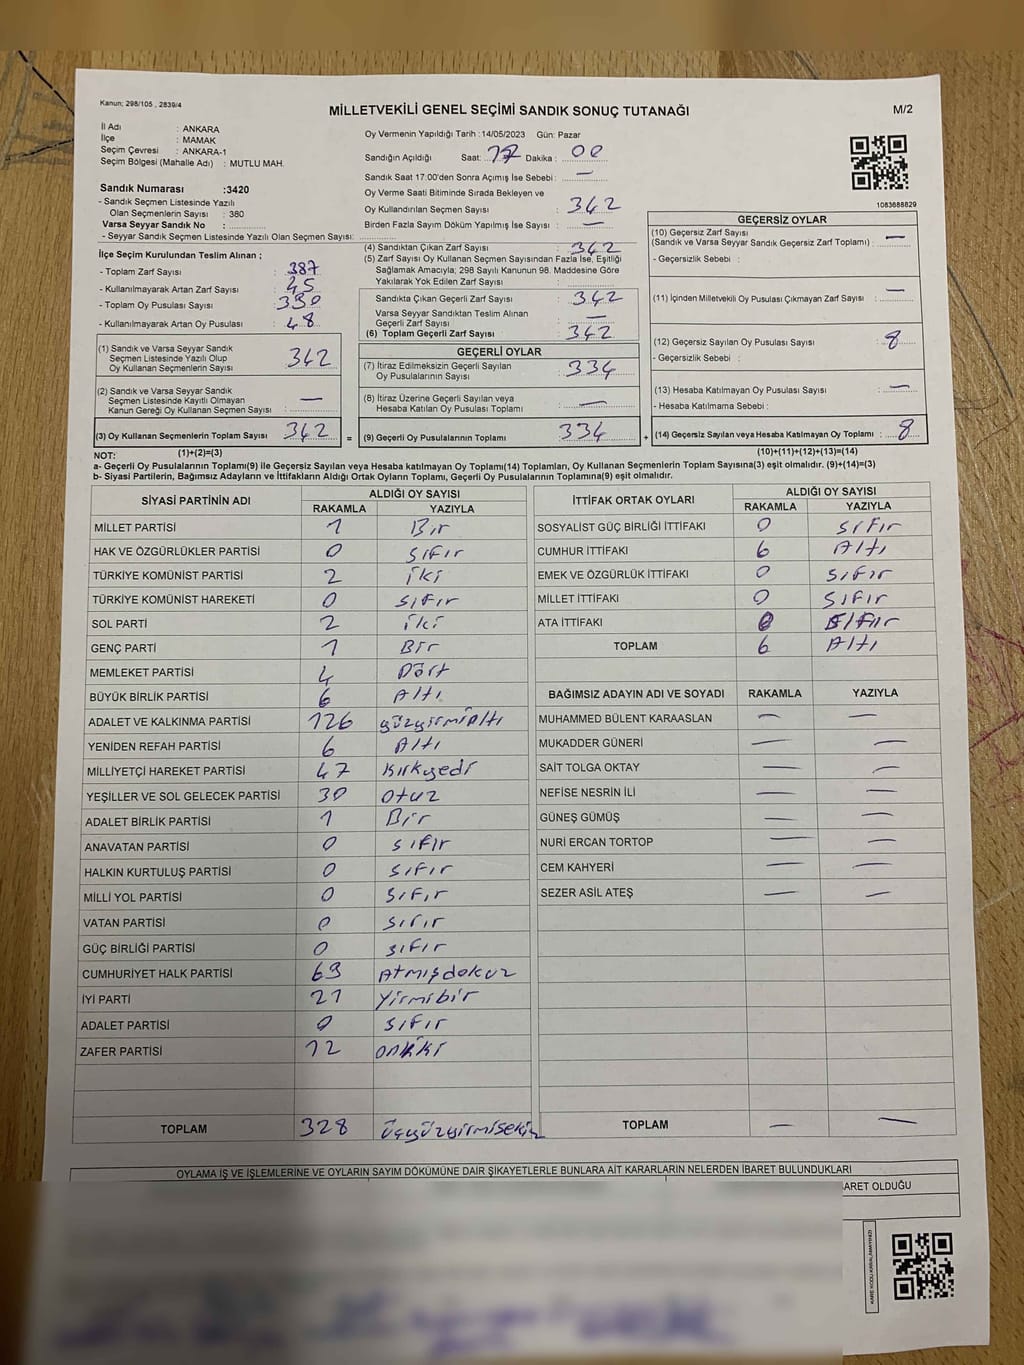 Kanun; 298/105 , 2839/4
MİLLETVEKİLİ GENEL SEÇİMİ SANDIK SONUÇ TUTANAĞI
M/2
İl Adı : ANKARA
İlçe : MAMAK
Seçim Çevresi : ANKARA-1
Seçim Bölgesi (Mahalle Adı) : MUTLU MAH.
Sandık Numarası :3420
- Sandık Seçmen Listesinde Yazılı
Olan Seçmenlerin Sayısı : 380
Varsa Seyyar Sandık No :
- Seyyar Sandık Seçmen Listesinde Yazılı Olan Seçmen Sayısı:
İlçe Seçim Kurulundan Teslim Alınan ;
- Toplam Zarf Sayısı : 387
- Kullanılmayarak Artan Zarf Sayısı : 45
- Toplam Oy Pusulası Sayısı :
- Kullanılmayarak Artan Oy Pusulası : 48
(1) Sandık ve Varsa Seyyar Sandık
Seçmen Listesinde Yazılı Olup
Oy Kullanan Seçmenlerin Sayısı : 342
(2) Sandık ve Varsa Seyyar Sandık
Seçmen Listesinde Kayıtlı Olmayan
Kanun Gereği Oy Kullanan Seçmen Sayısı : —
(3) Oy Kullanan Seçmenlerin Toplam Sayısı : 342
(1)+(2)=(3)
Oy Vermenin Yapıldığı Tarih :14/05/2023 Gün: Pazar
Sandığın Açıldığı Saat: 17 Dakika : 00
Sandık Saat 17.00'den Sonra Açılmış İse Sebebi : —
Oy Verme Saati Bitiminde Sırada Bekleyen ve
Oy Kullandırılan Seçmen Sayısı : 342
Birden Fazla Sayım Döküm Yapılmış İse Sayısı : —
(4) Sandıktan Çıkan Zarf Sayısı : 342
(5) Zarf Sayısı Oy Kullanan Seçmen Sayısından Fazla İse, Eşitliği
Sağlamak Amacıyla; 298 Sayılı Kanunun 98. Maddesine Göre
Yakılarak Yok Edilen Zarf Sayısı :
Sandıkta Çıkan Geçerli Zarf Sayısı : 342
Varsa Seyyar Sandıktan Teslim Alınan
Geçerli Zarf Sayısı : —
(6) Toplam Geçerli Zarf Sayısı : 342
GEÇERLİ OYLAR
(7) İtiraz Edilmeksizin Geçerli Sayılan
Oy Pusulalarının Sayısı : 334
(8) İtiraz Üzerine Geçerli Sayılan veya
Hesaba Katılan Oy Pusulası Toplamı : —
= (9) Geçerli Oy Pusulalarının Toplamı : 334
1083688829
GEÇERSİZ OYLAR
(10) Geçersiz Zarf Sayısı
(Sandık ve Varsa Seyyar Sandık Geçersiz Zarf Toplamı) : —
- Geçersizlik Sebebi :
(11) İçinden Milletvekili Oy Pusulası Çıkmayan Zarf Sayısı : —
(12) Geçersiz Sayılan Oy Pusulası Sayısı : 8
- Geçersizlik Sebebi :
(13) Hesaba Katılmayan Oy Pusulası Sayısı : —
- Hesaba Katılmama Sebebi :
+ (14) Geçersiz Sayılan veya Hesaba Katılmayan Oy Toplamı : 8
(10)+(11)+(12)+(13)=(14)
NOT:
a- Geçerli Oy Pusulalarının Toplamı(9) ile Geçersiz Sayılan veya Hesaba katılmayan Oy Toplamı(14) Toplamları, Oy Kullanan Seçmenlerin Toplam Sayısına(3) eşit olmalıdır. (9)+(14)=(3)
b- Siyasi Partilerin, Bağımsız Adayların ve İttifakların Aldığı Ortak Oyların Toplamı, Geçerli Oy Pusulalarının Toplamına(9) eşit olmalıdır.
SİYASİ PARTİNİN ADI ALDIĞI OY SAYISI
RAKAMLA YAZIYLA
MİLLET PARTİSİ 1 Bir
HAK VE ÖZGÜRLÜKLER PARTİSİ 0 sıfır
TÜRKİYE KOMÜNİST PARTİSİ 2 iki
TÜRKİYE KOMÜNİST HAREKETİ 0 sıfır
SOL PARTİ 2 iki
GENÇ PARTİ 1 Bir
MEMLEKET PARTİSİ 4 Dört
BÜYÜK BİRLİK PARTİSİ 6 Altı
ADALET VE KALKINMA PARTİSİ 126 yüzyirmialtı
YENİDEN REFAH PARTİSİ 6 Altı
MİLLİYETÇİ HAREKET PARTİSİ 47 kırkyedi
YEŞİLLER VE SOL GELECEK PARTİSİ 30 otuz
ADALET BİRLİK PARTİSİ 1 Bir
ANAVATAN PARTİSİ 0 sıfır
HALKIN KURTULUŞ PARTİSİ 0 sıfır
MİLLİ YOL PARTİSİ 0 sıfır
VATAN PARTİSİ 0 sıfır
GÜÇ BİRLİĞİ PARTİSİ 0 sıfır
CUMHURİYET HALK PARTİSİ 69 Atmışdokuz
İYİ PARTİ 21 Yirmibir
ADALET PARTİSİ 0 sıfır
ZAFER PARTİSİ 12 oniki
TOPLAM 328 üçyüzyirmisekiz
İTTİFAK ORTAK OYLARI ALDIĞI OY SAYISI
RAKAMLA YAZIYLA
SOSYALİST GÜÇ BİRLİĞİ İTTİFAKI 0 sıfır
CUMHUR İTTİFAKI 6 Altı
EMEK VE ÖZGÜRLÜK İTTİFAKI 0 sıfır
MİLLET İTTİFAKI 0 sıfır
ATA İTTİFAKI 0 sıfır
TOPLAM 6 Altı
BAĞIMSIZ ADAYIN ADI VE SOYADI RAKAMLA YAZIYLA
MUHAMMED BÜLENT KARAASLAN — —
MUKADDER GÜNERİ — —
SAİT TOLGA OKTAY — —
NEFİSE NESRİN İLİ — —
GÜNEŞ GÜMÜŞ — —
NURİ ERCAN TORTOP — —
CEM KAHYERİ — —
SEZER ASİL ATEŞ — —
TOPLAM — —
OYLAMA İŞ VE İŞLEMLERİNE VE OYLARIN SAYIM DÖKÜMÜNE DAİR ŞİKAYETLERLE BUNLARA AİT KARARLARIN NELERDEN İBARET BULUNDUKLARI
BARET OLDUĞU